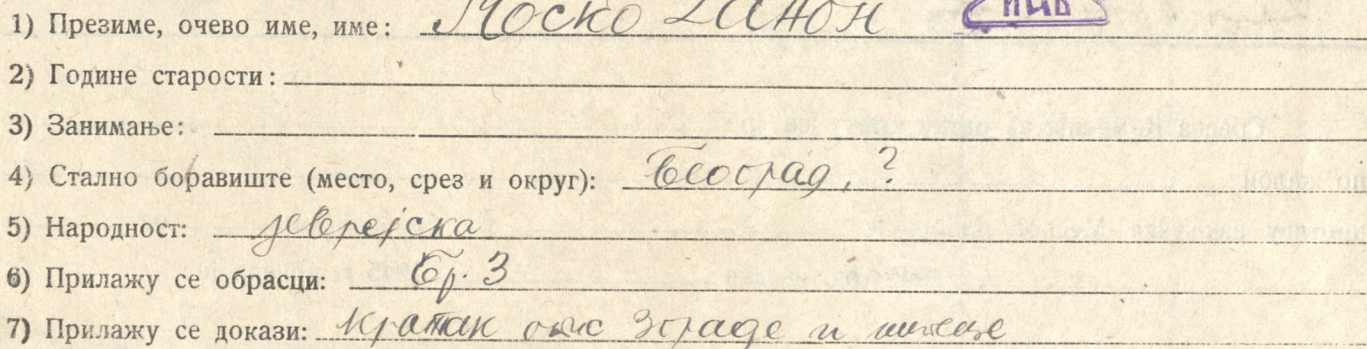 1) Презиме, очево име, име: Моско
2) Године старости:
3) Занимање:
4) Стално боравиште (место, срез и округ): Београд, ?
5) Народност: јеврејска
6) Прилажу се обрасци: Бр. 3
7) Прилажу се докази: Кратак опис зграде и